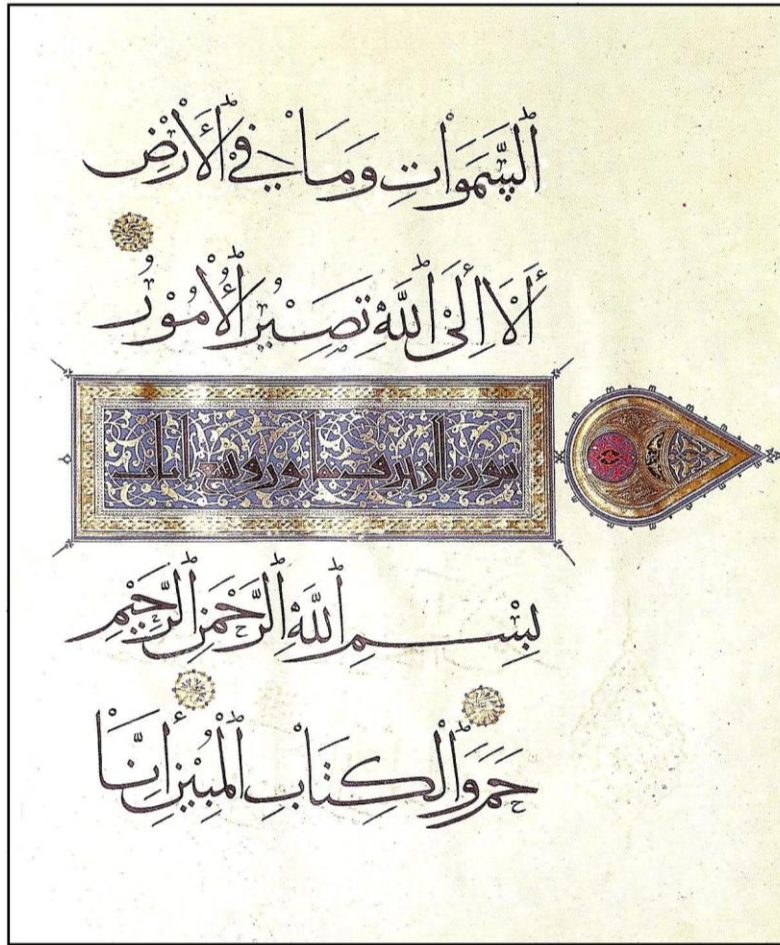 ٱلسَّمَوَاتِ وَمَا فِي ٱلْأَرْضِ
أَلَا إِلَى ٱللَّهِ تَصِيْرُ ٱلْأُمُوْرُ
سورة الزخرف ثمانون وتسع ايات
بِسْمِ ٱللَّهِ ٱلرَّحْمَنِ ٱلرَّحِيْمِ
حَمَ وَٱلْكِتَابِ ٱلْمُبِيْنِ إِنَّا